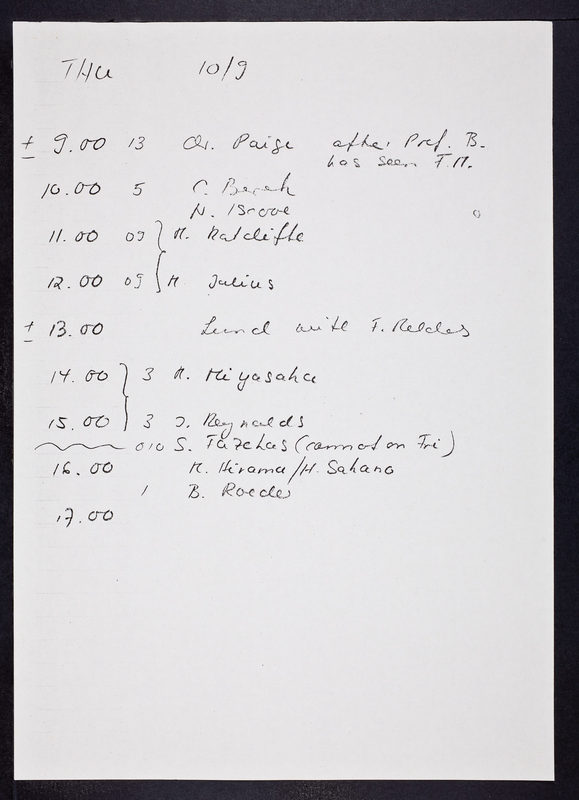 THU 10/9
± 9.00 13 Dr. Paige after Prof. B.
has seen F.M.
10.00 5 C. Berek
N. Iscove
11.00 09 M. Ratcliffe
12.00 09 M. Julius
± 13.00 Lunch with F. Melchers
14.00 3 M. Miyasaka
15.00 3 J. Reynolds
010 S. (cannot on Fri)
16.00 M. Hirama/H. Sakano
1 B. Roeder
17.00